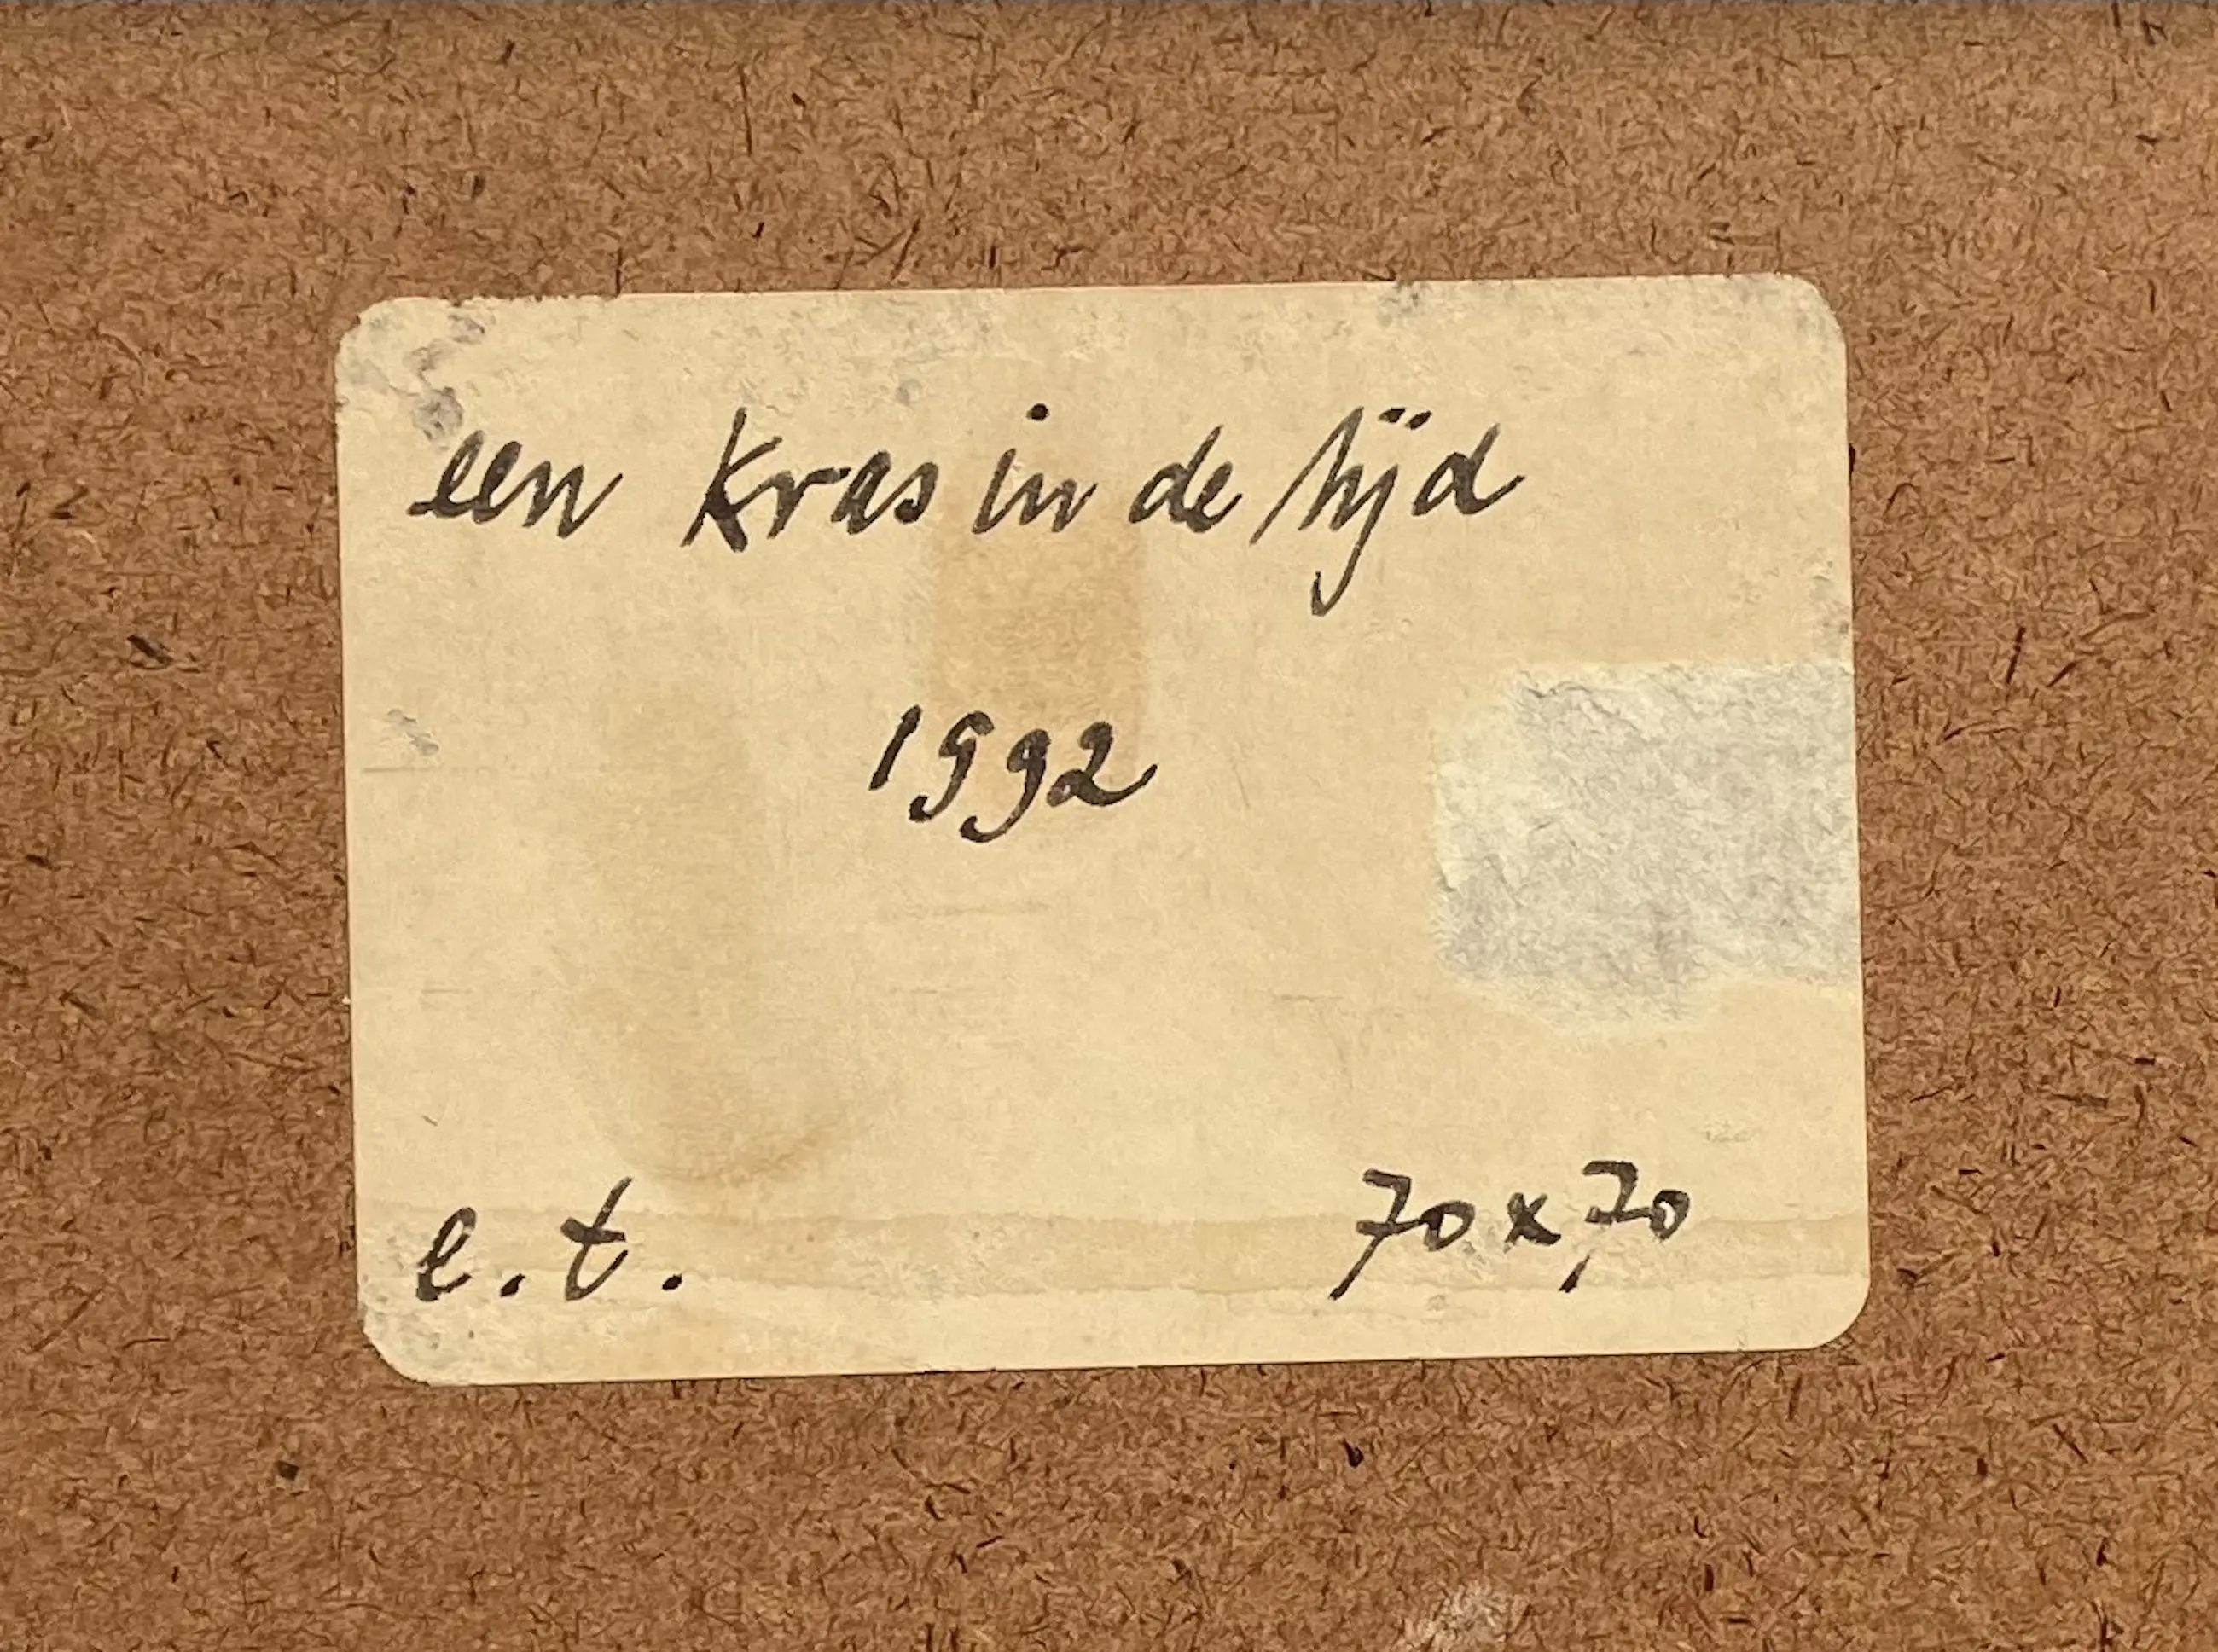 een kras in de tijd
1992
e.t.
70 x 70